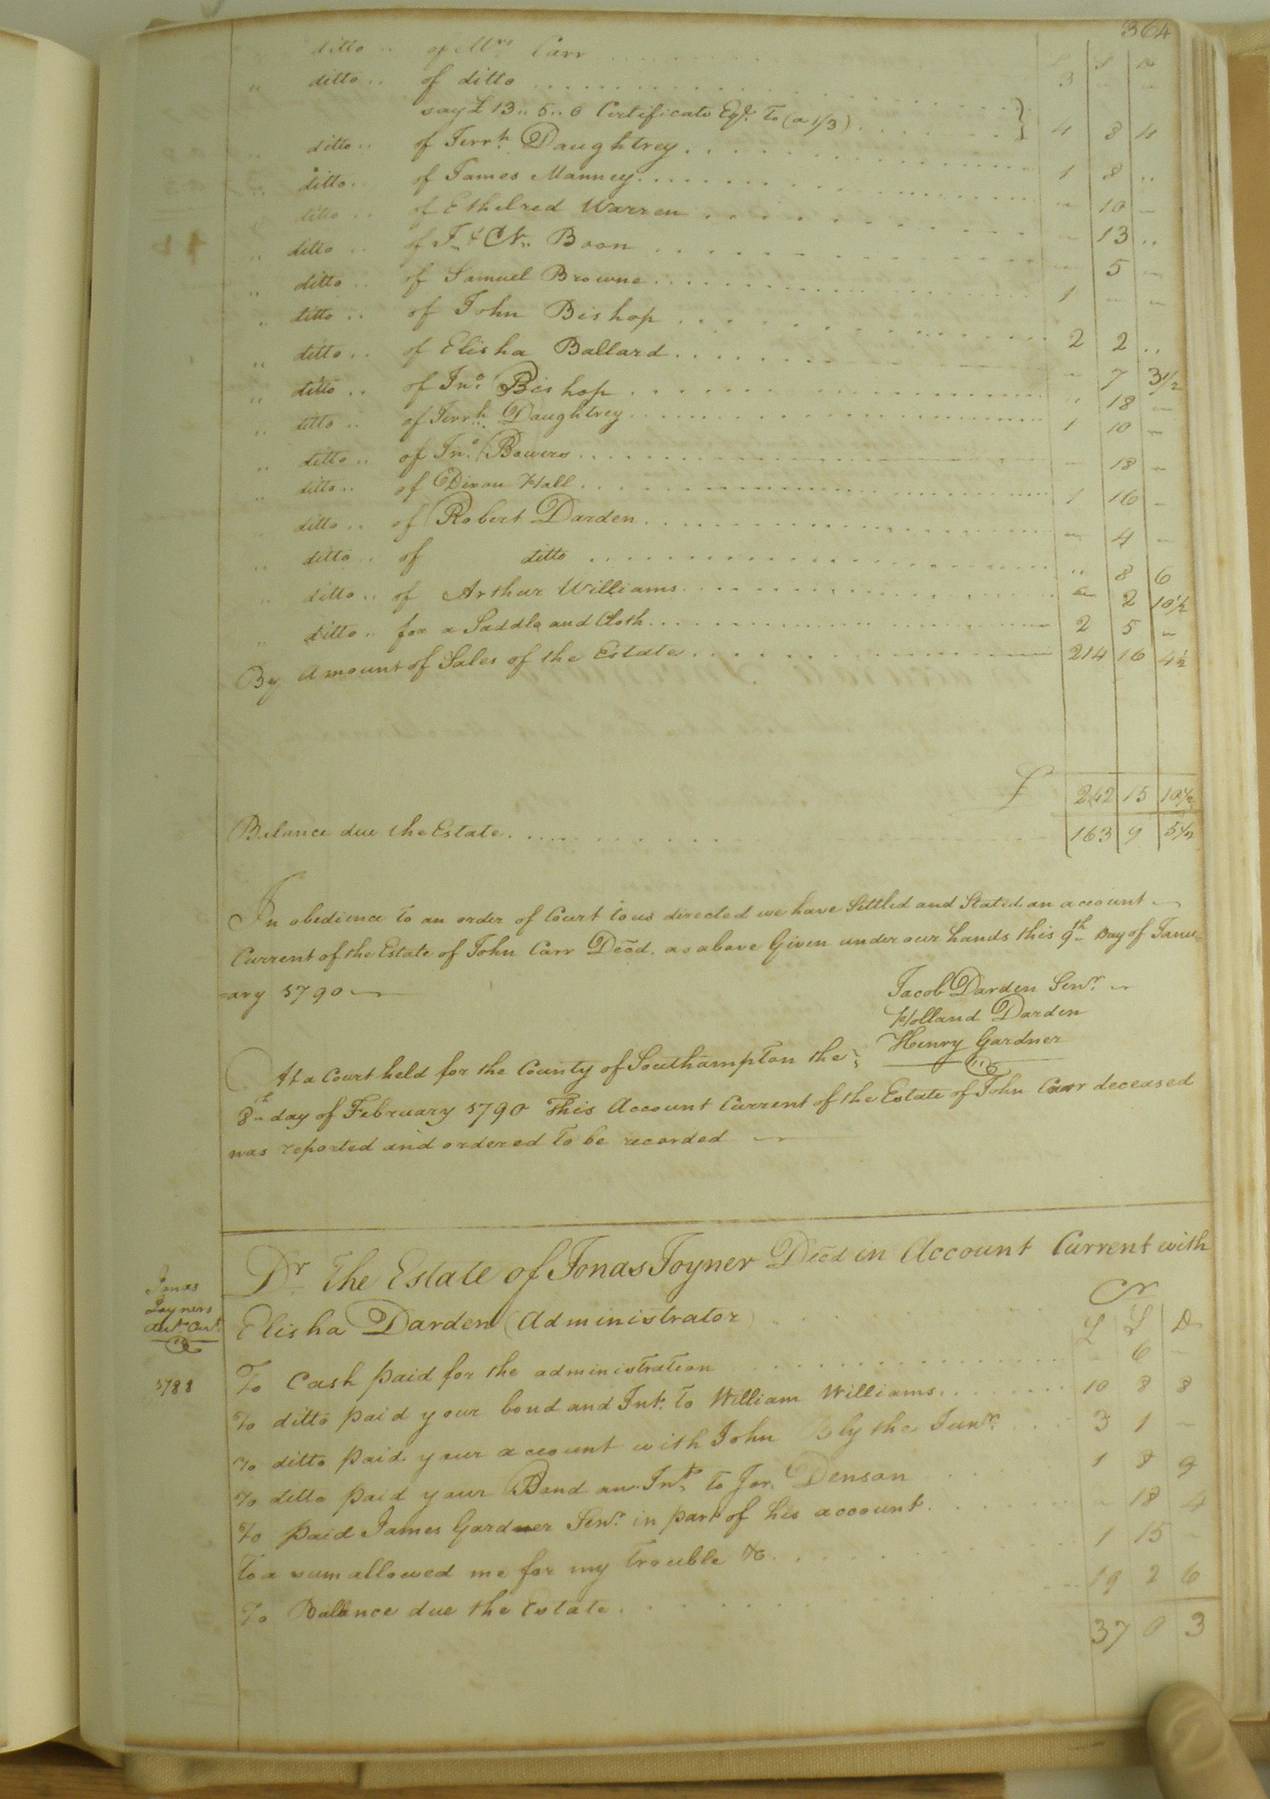 364
ditto .. of Mrs. Carr
£ S D
" ditto .. of ditto 3 - -
say £ 13 .. 5 .. 0 Certificate Eql. to (a 1/3) } 4 8 4
" ditto .. of Jerrh. Daughtrey 1 8 ..
" ditto .. of James Manney - 10 -
" ditto .. of Ethelred Warren - 13 ..
" ditto .. of J. & N. Boon - 5 -
" ditto .. of Samuel Browne 1 - -
" ditto .. of John Bishop 2 2 ..
" ditto .. of Elisha Ballard - 7 3 1/2
" ditto .. of Jno. Bishop " 18 -
" ditto .. of Jerrh. Daughtrey 1 10 -
" ditto .. of Jno. Bowers - 18 -
" ditto .. of Dixon Hall 1 16 -
" ditto .. of Robert Darden - 4 -
" ditto .. of ditto .. 8 6
" ditto .. of Arthur Williams - 2 10 1/2
" ditto .. for a Saddle and Cloth 2 5 -
By Amount of Sales of the Estate 214 16 4 1/2
£ 242 15 10 1/2
Balance due the Estate 163 9 5 1/2
In obedience to an order of Court to us directed we have Settled and Stated an account
Current of the Estate of John Carr Decd. as above Given under our hands this 9th Day of Janu=
=ary 1790
Jacob Darden Senr.
Holland Darden
Henry Gardner
At a Court held for the County of Southampton the
8th day of February 1790 This Account Current of the Estate of John Carr deceased
was reported and ordered to be recorded
Jonas
Joyners
Dr The Estate of Jonas Joyner Decd in Account Current with
Cr
Elisha Darden (Administrator) £ S D
1788
To Cash paid for the administration - 6 -
To ditto paid your bond and Int. to William Williams 10 8 8
To ditto paid your account with John Blythe Junr. 3 1 -
To ditto paid your Bond an Int. to Jor. Denson 1 8 9
To paid James Gardner Senr. in part of his account - 18 4
To a sum allowed me for my trouble &c 1 15 -
To Balance due the Estate 19 2 6
37 0 3